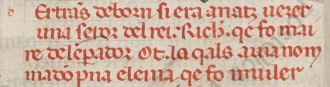 b Ertrans deborn si era anatz uezer
una seror del rei. Richᵗ. qe fo mai
re del ēpador Ot. la qals auia nom
madōpna eleina qe fo moiller